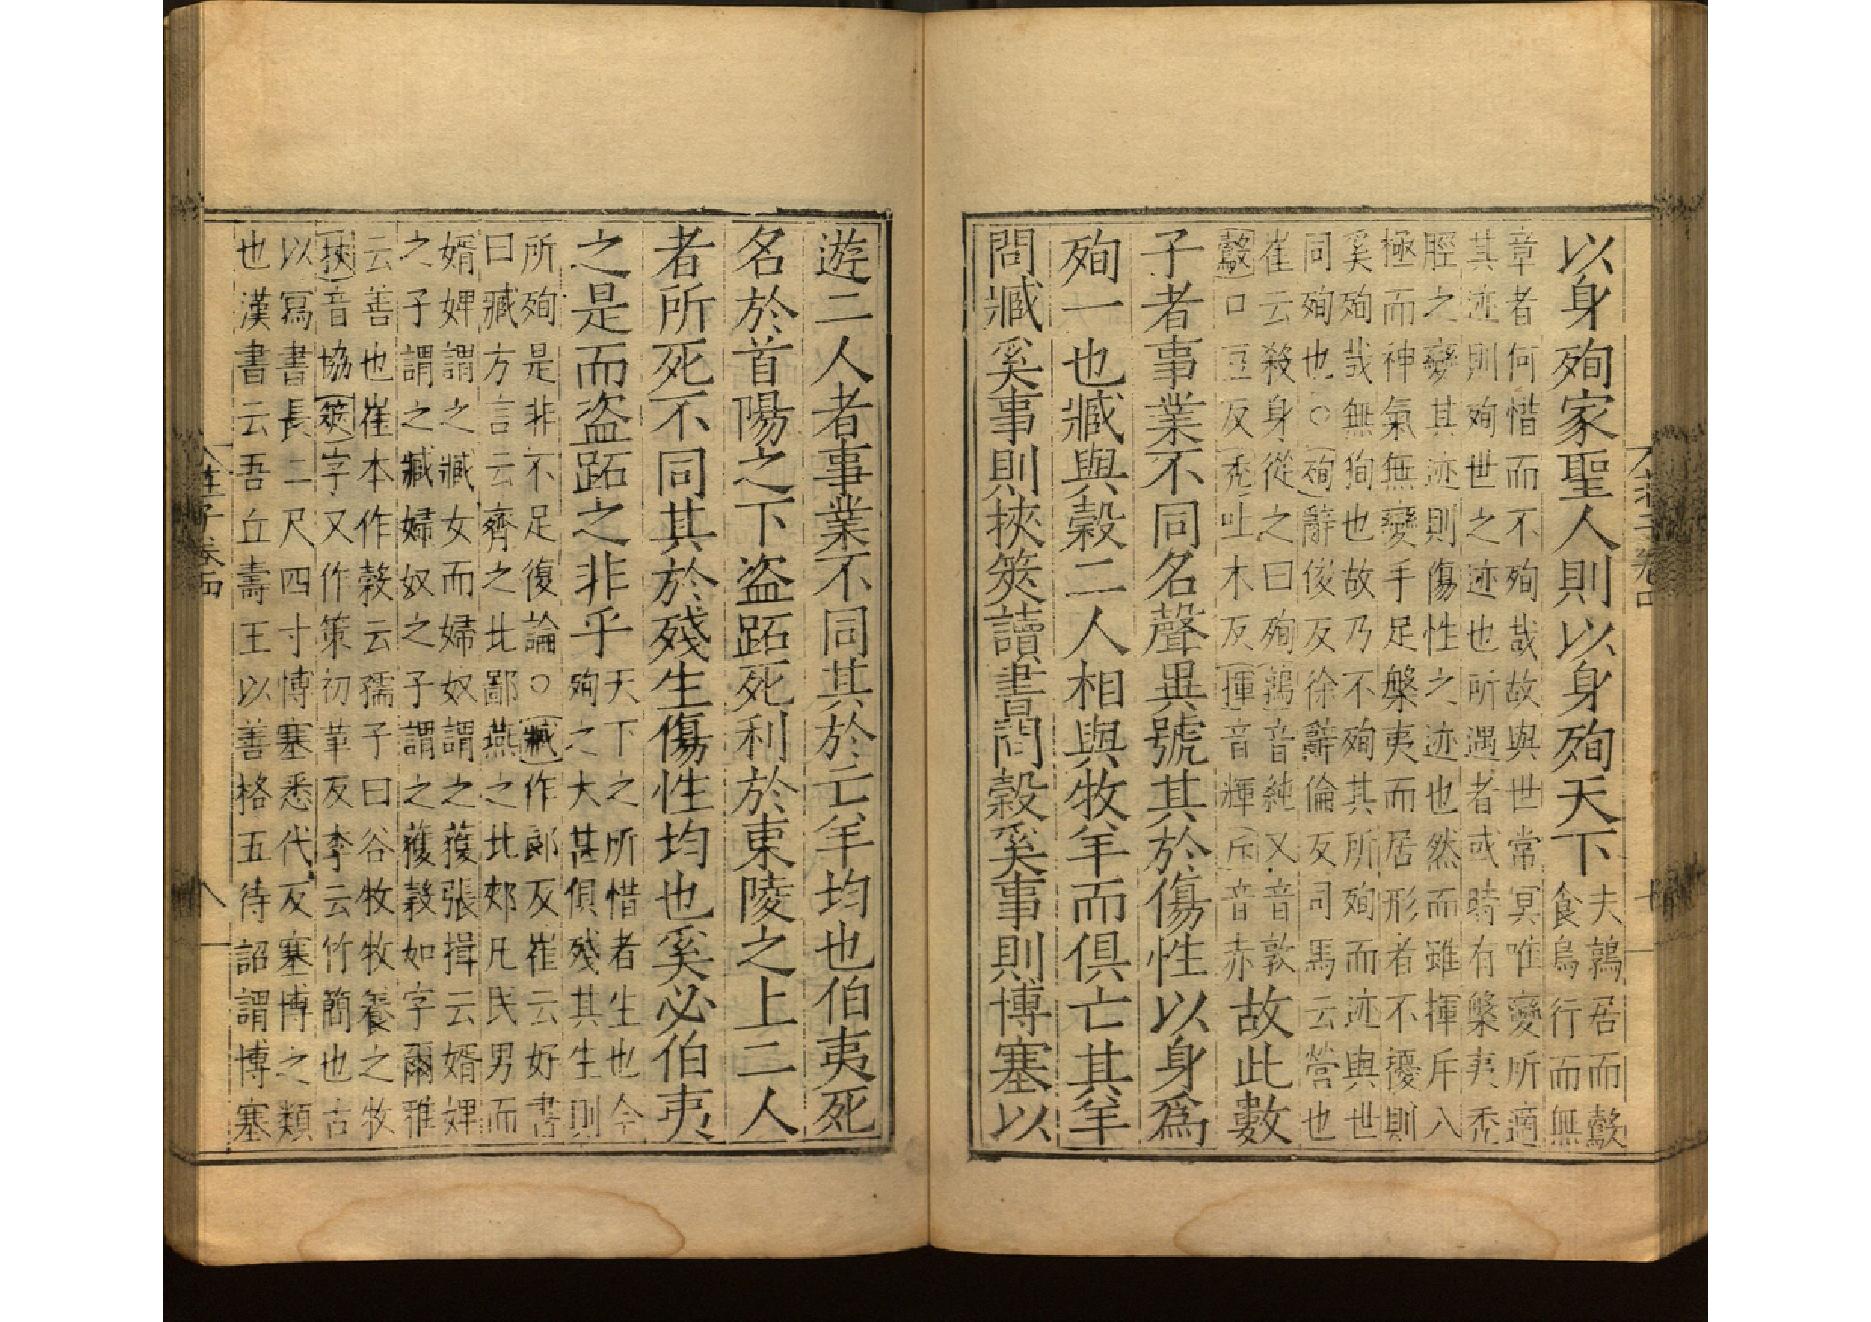 以身殉家聖人則以身殉天下夫鶉居而鷇
食鳥行而無
章者何惜而不殉哉故與世常冥唯變所適
其迹則殉世之迹也所遇者或時有槃夷禿
脛之變其迹則傷性之迹也然而雖揮斥八
極而神氣無變手足槃夷而居形者不擾則
奚殉哉無狥也故乃不殉其所殉而迹與世
同殉也○殉辭俊反徐辭倫反司馬云營也
崔云殺身從之曰殉鶉音純又音敦
鷇口豆反禿吐木反揮音輝斥音赤故此數
子者事業不同名聲異號其於傷性以身爲
殉一也臧與穀二人相與牧羊而俱亡其羊
問臧奚事則挾筴讀書問穀奚事則博塞以
遊二人者事業不同其於亡羊均也伯夷死
名於首陽之下盜跖死利於東陵之上二人
者所死不同其於殘生傷性均也奚必伯夷
之是而盜跖之非乎天下之所惜者生也今
殉之大甚俱殘其生則
所殉是非不足復論○臧作郎反崔云好書
曰臧方言云齊之北鄙燕之北郊凡民男而
婿婢謂之臧女而婦奴謂之獲張揖云婿婢
之子謂之臧婦奴之子謂之獲穀如字爾雅
云善也崔本作㝅云孺子曰谷牧牧養之牧
挾音協筴字又作策初革反李云竹簡也古
以寫書長二尺四寸博塞悉代反塞博之類
也漢書云吾丘壽王以善格五待詔謂博塞
莊子卷四